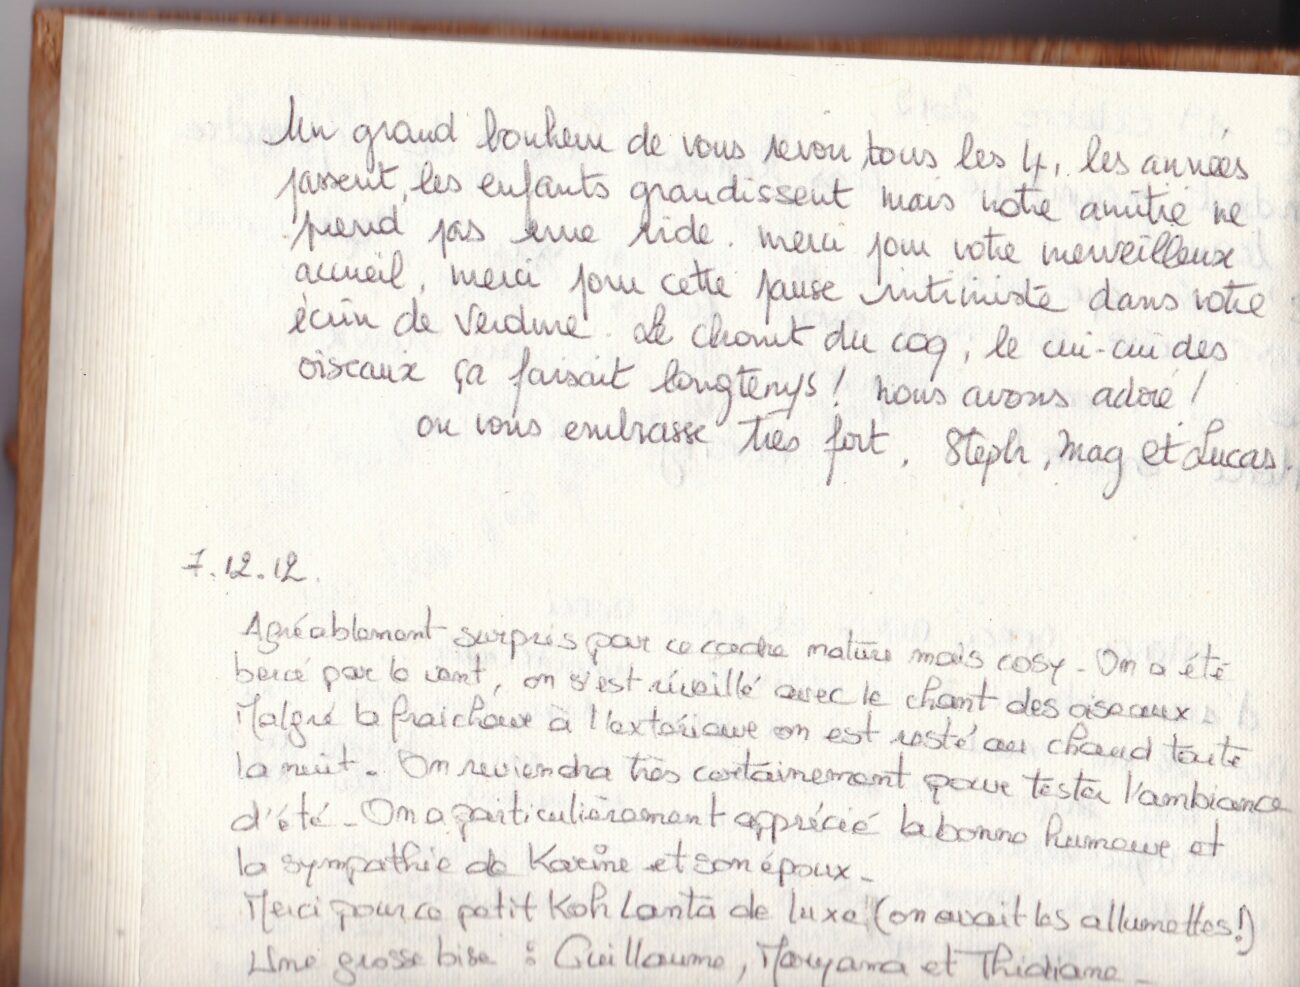 Un grand bonheur de vous revoir tous les 4, les années
passent, les enfants grandissent mais notre amitié ne
prend pas une ride. merci pour votre merveilleux
accueil, merci pour cette pause intimiste dans votre
écrin de verdure. Le chant du coq, le cui-cui des
oiseaux ça faisait longtemps! nous avons adoré!
on vous embrasse très fort. Steph, Mag et Lucas.
7.12.12.
Agréablement surpris par ce cadre nature mais cosy - On a été
bercé par le vent, on s'est réveillé avec le chant des oiseaux
Malgré la fraicheur à l'extérieure on est resté au chaud toute
la nuit. On reviendra très certainement pour tester l'ambiance
d'été - On a particulièrement apprécié la bonne humeur et
la sympathie de Karine et son époux -
Merci pour ce petit Koh Lanta de luxe (on avait les allumettes!)
Une grosse bise : Guillaume, Maryama et Thidiane -